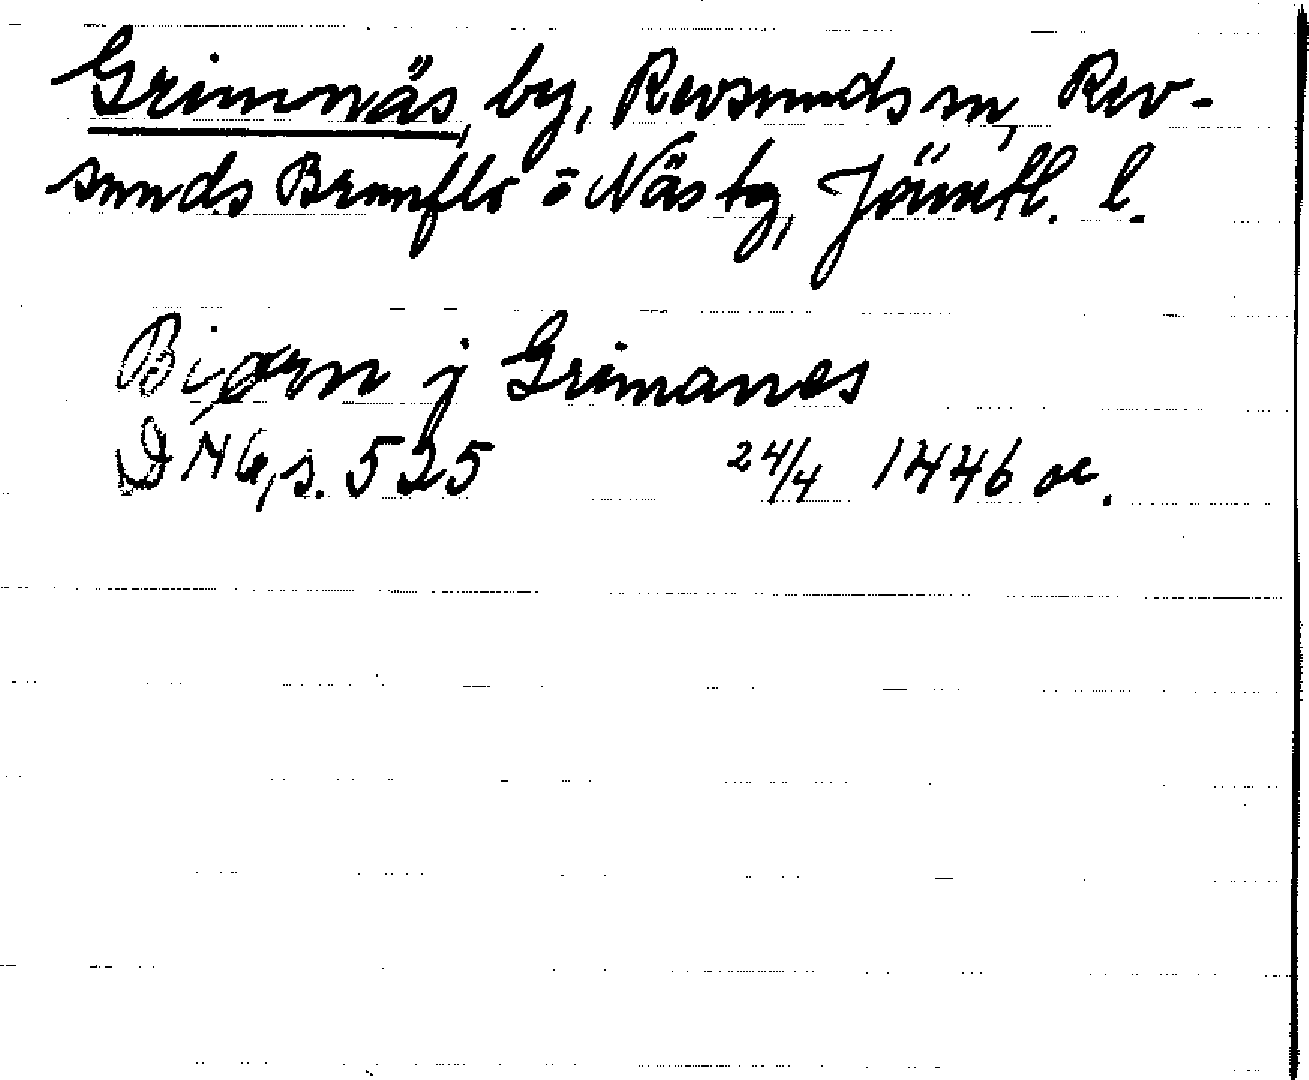 Grimnäs, by, Revsunds sn, Rev-
sunds Brunflo o Näs tg, Jämtl. l.
Biørn j Grimanes
DN 16, s. 525 24/4 1446 or.